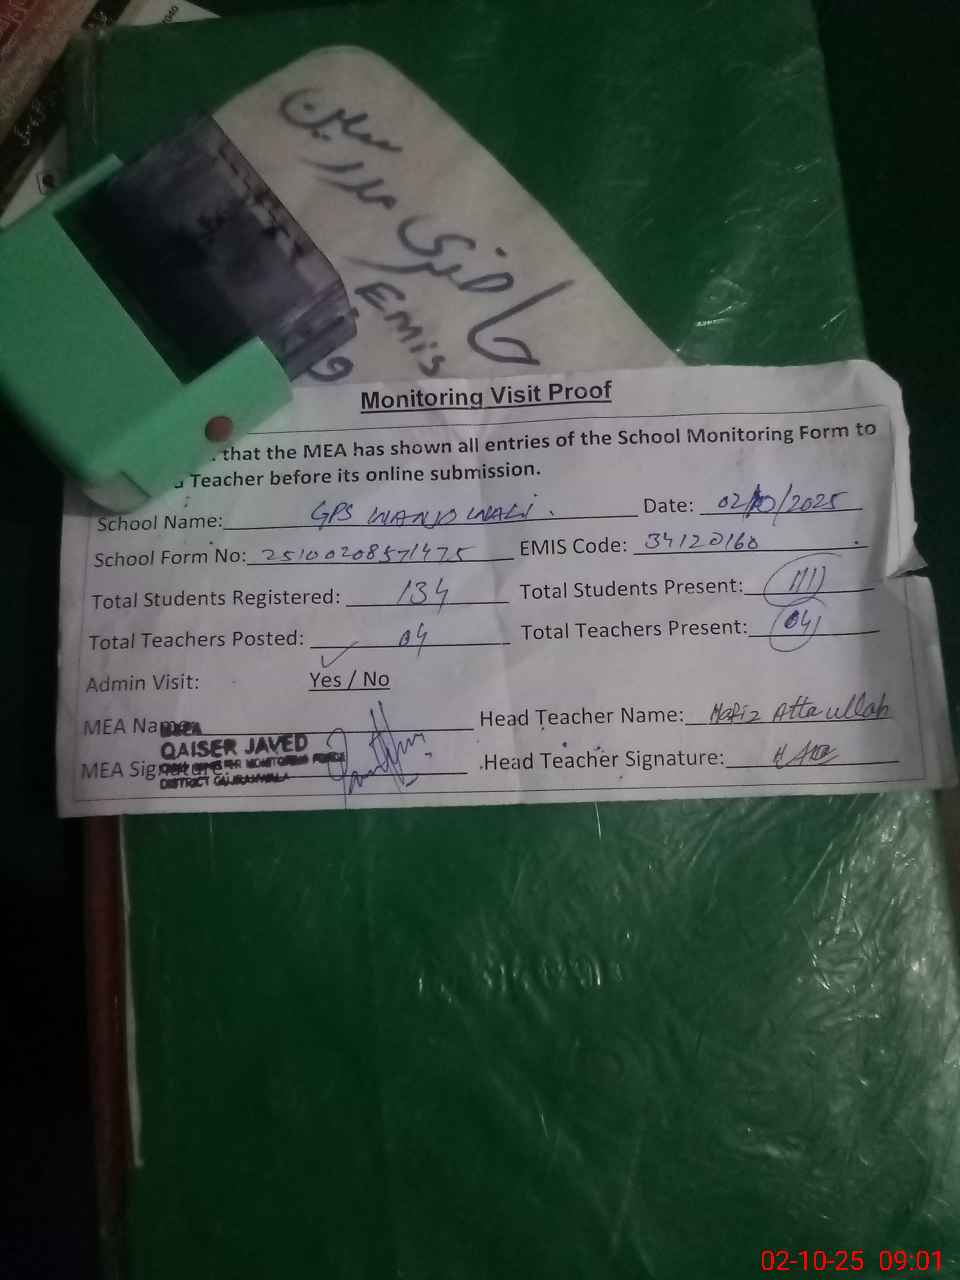 حاضری مدرسین
EMIS
Monitoring Visit Proof
that the MEA has shown all entries of the School Monitoring Form to
Teacher before its online submission.
School Name: GPS Date: 02/10/2025
School Form No: 25100208571475 EMIS Code: 34120160
Total Students Registered: 134 Total Students Present: 111
Total Teachers Posted: 04 Total Teachers Present: 04
Admin Visit: Yes / No
MEA Name Head Teacher Name: Hafiz Atta ullah
QAISER JAVED
MEA Signature Head Teacher Signature:
DISTRICT GUJRANWALA
02-10-25 09:01